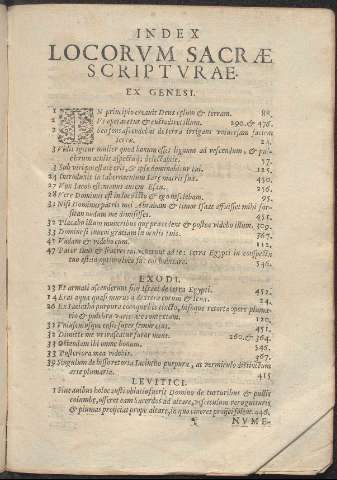 INDEX
LOCORVM SACRÆ
SCRIPTVRAE.
EX GENESI.
1 IN principio creauit Deus cœlum & terram. 88.
2 Vt operaretur & custodiret illum. 290. & 476.
2 fons ascendebat de terra irrigans vniuersam faciem
terræ. 23.
3 Vidit igitur mulier quod bonum esset lignum ad vescendum, & pul-
chrum oculis aspectuque delectabile. 57.
3 Sub viri potestate eris, & ipse dominabitur tui. 125.
24 Introduxit in tabernaculum Saræ matris suæ. 450.
27 Vox Iacob est, manus autem Esau. 256.
28 Vere Dominus est in loco isto & ego nesciebam. 95.
31 Nisi Dominus patris mei Abraham & timor Isaac affuisset mihi for-
sitan nudum me dimisisses. 451.
32 Placabo illum muneribus quæ præcedunt & postea videbo illum. 309.
33 Domine si inueni gratiam in oculis tuis. 362.
45 Vadam & videbo eum. 112.
47 Pater tuus & fratres tui venerunt ad te: terra Egypti in conspectu
tuo est, in optimo loco fac eos habitare. 546.
EXODI.
13 Et armati ascenderunt filij Israel de terra Egypti. 452.
14 Erat aqua quasi murus a dextera eorum & læua. 24.
26 hyacintho purpura coccoque bis tincto, bysso que retorta opere pluma-
rio & pulchra varietate contextum. 120.
32 ensis super femur suum. 451.
32 Dimitte me vt irascatur furor meus. 260. & 364.
33 Ostendam tibi omne bonum. 346.
33 Posteriora mea videbis. 367.
39 Cingulum de bysso retorta hyacintho purpura, ac vermiculo distinctum
arte plumaria. 415
LEVITICI.
1 Sin autem holocausti oblatio fuerit Domino de turturibus & pullis
columbæ, offeret eam Sacerdos ad altare, vesiculam vero gutturis
& plumas projiciat prope altare, in quo cineres projici solent. 446.
NVME-